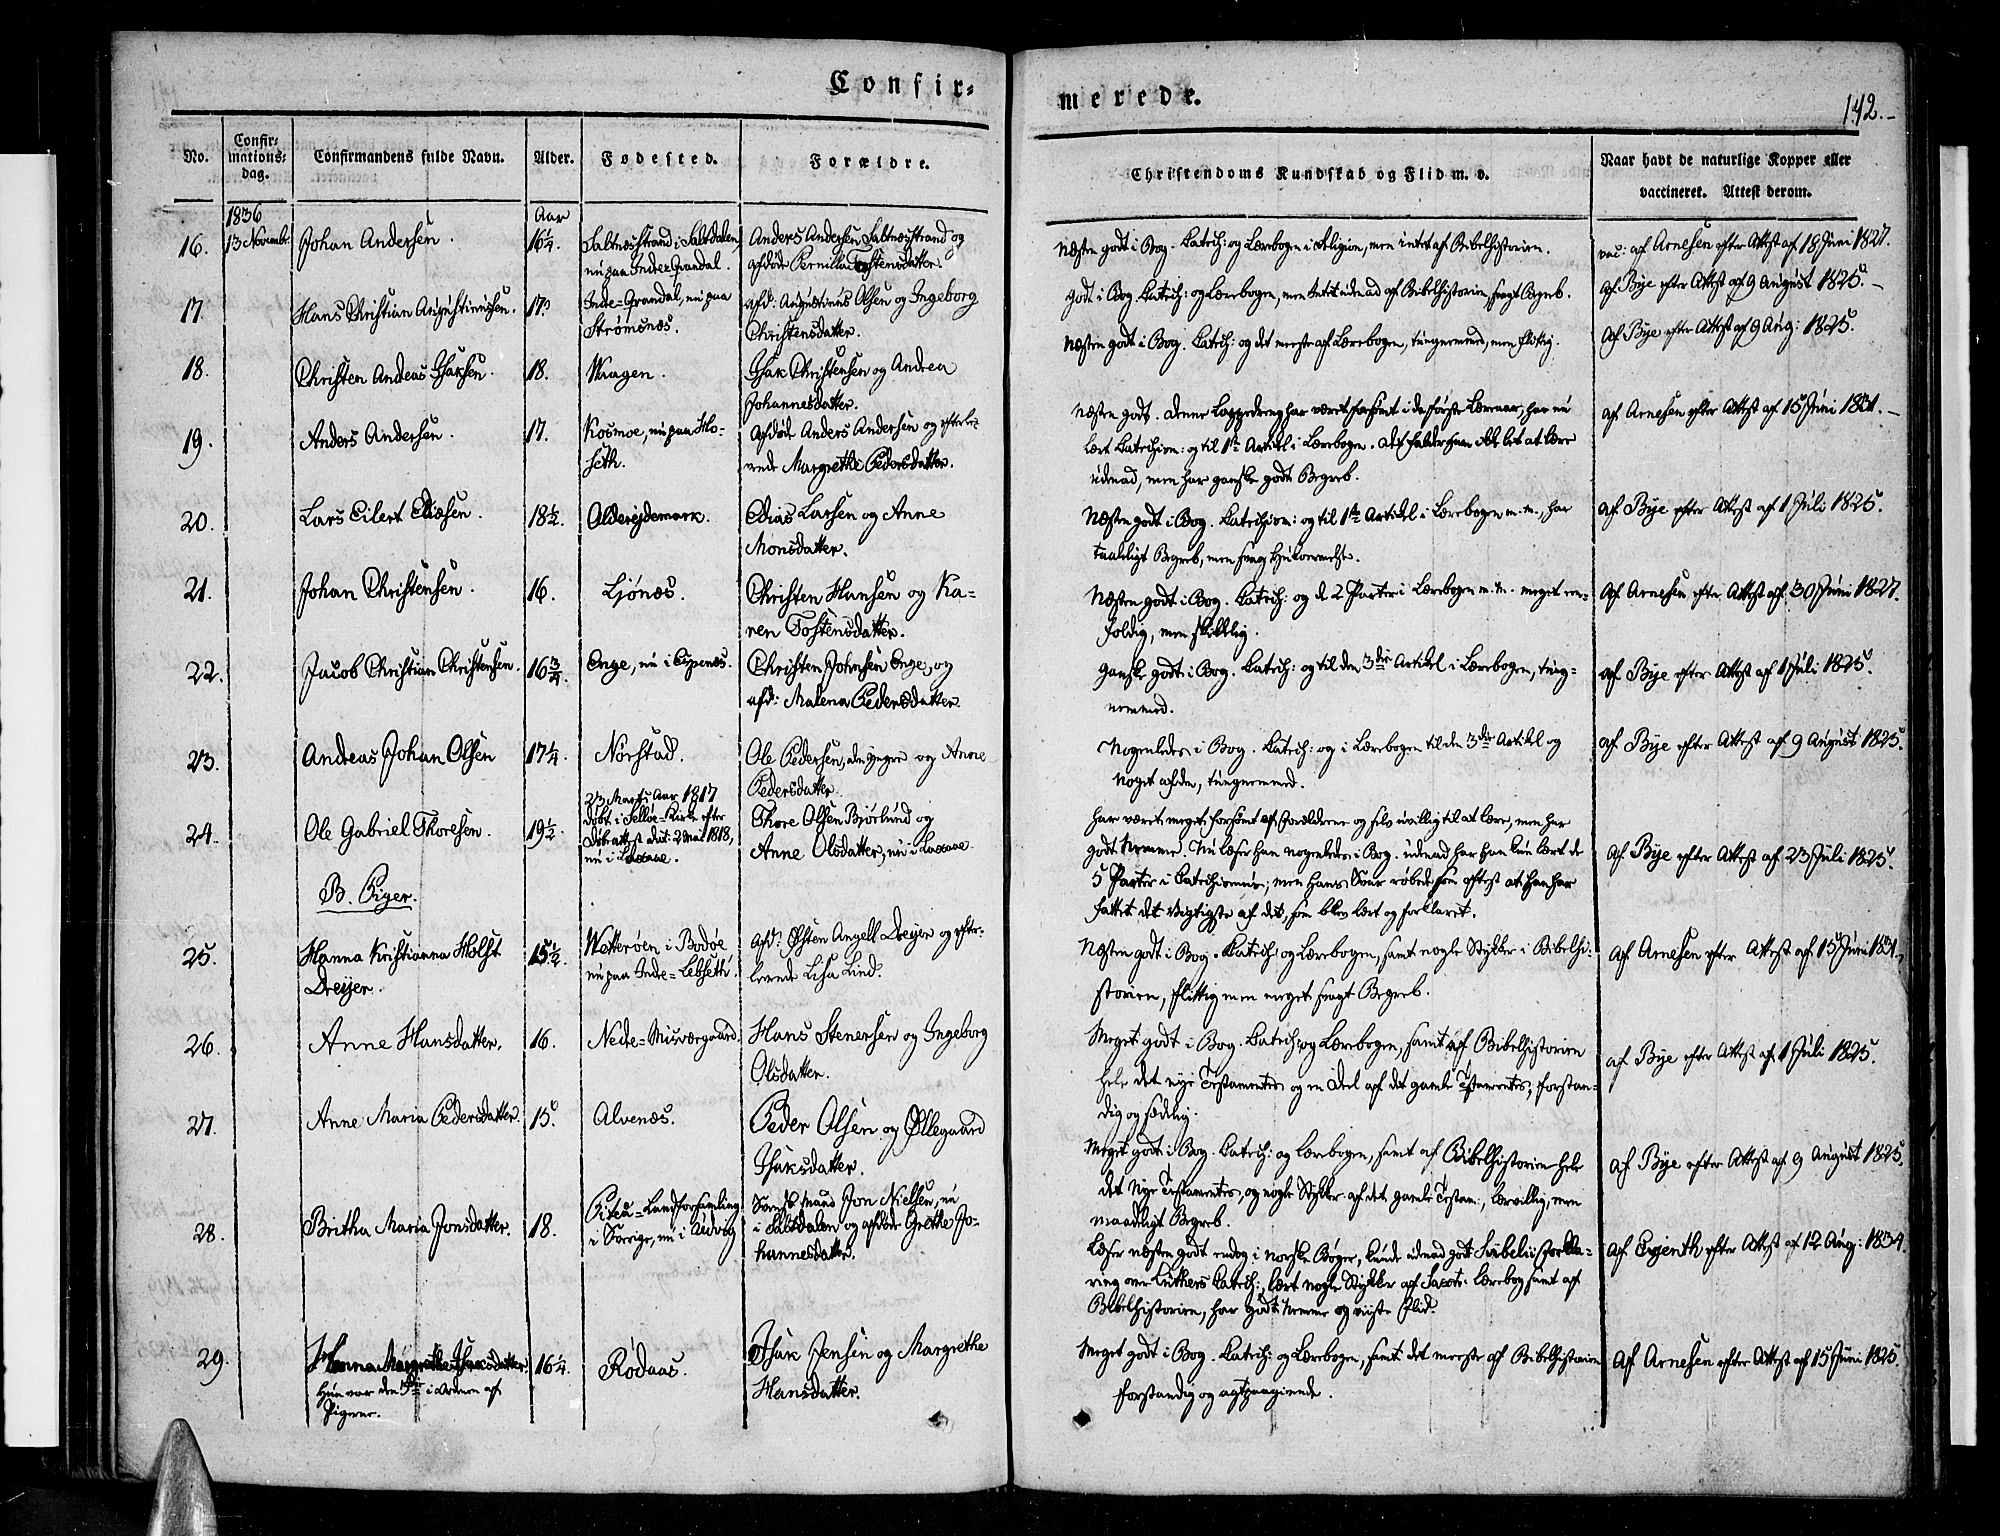 Confir-
merede.
142.-
No.
Confir-
mations-
dag.
Confirmandens fulde Navn.
Alder.
Fødested.
Forældre.
Christendoms Kundskab og Flid m. v.
Naar havt de naturlige Kopper eller
vaccineret. Attest derom.
1836
Aar
16. 13 Novembr. Johan Andersen. 16¼. Saltnæsstrand i Saltdalen, Anders Andersen Saltnæsstrand og
nu paa Inder Grandal. afdøde Pernilla Tostensdatter.
Næsten godt i Bog. Catech: og Lærebogen i Religion, men intet af Bibelhistorien.
vac: af Arnesen efter Attest af 18 Juni 1827.
17. Hans Christian Augustinusen. 17. Inde-Grandal, nu paa afd: Augustinus Olsen og Ingeborg
Strømsnæs. Christensdatter.
godt i Bog Catech: og Lærebogen, men Intet udenad af Bibelhistorien, svagt Begreb.
af Bye efter Attest af 9 August 1825.-
18. Christen Andreas Isaksen. 18. Kragen. Isak Christensen og Andrea
Johannesdatter.
Næsten godt i Bog. Catech: og det meeste af Lærebogen, tungnemmed, men flittig.
Af Bye efter Attest af 9 Aug: 1825.
19. Anders Andersen. 17. Kosmoe, nu paa Ho- afdøde Anders Andersen og efterle-
seth. vende Margrethe Pedersdatter.
Næsten godt. Denne Lappedreng har været forsømt i de første Læreaar, har nu
lært Catechism: og til 1ste Artikel i Lærebogen. Det falder ham ikke let at lære
udenad, men har ganske godt Begreb.
af Arnesen efter Attest af 15 Juni 1831.-
20. Lars Eilert Eliasen. 18½. Aldereidemark. Elias Larsen og Anne
Monsdatter.
Næsten godt i Bog. Catechism: og til 1ste Artikel i Lærebogen m. m., har
taaleligt Begreb, men svag Hukommelse.
af Bye efter Attest af 1 Juli 1825.
21. Johan Christensen. 16. Ljønæs. Christen Hansen og Ka-
ren Tostensdatter.
Næsten godt i Bog. Catech: og de 2 Parter i Lærebogen m. m. meget een-
foldig, men skikkelig.
af Arnesen efter Attest af 30 Juni 1827.
22. Jacob Christian Christensen. 16¾. Enge, nu i Eypenæs. Christen Johnsen Enge, og
afd: Malena Pedersdatter.
Ganske godt i Bog. Catech: og til den 3die Artikel i Lærebogen, tung-
nemmed.
af Bye efter Attest af 1 Juli 1825.
23. Andreas Johan Olsen 17¼. Nørstad. Ole Pedersen, den yngre og Anne
Pedersdatter.
Nogenledes i Bog. Catech: og i Lærebogen til den 3die Artikel og
noget af den, tungnemmed.
af Bye efter Attest af 9 August 1825.
24. Ole Gabriel Thoresen. 19½. 23 Martii Aar 1817
døbt i Kirke efter
Døbeattest dat: 2 Mai 1818,
nu i
Thore Olsen Bjørlund og
Anne Olsdatter, nu i
Har været meget forsømt af Forældrene og selv uvillig til at lære, men har
godt Nemme. Nu læser han nogenledes i Bog. udenad har han kun lært de
5 Parter i Catechismus; men hans Svar røbede som oftest at han har
fattet det vigtigste af det, som blev lært og forklaret.
af Bye efter Attest af 23 Juli 1825.
B. Piger.
25. Hanna Kristianna Holst 15½. i Bodøe afd: Østen Angell Dreyer og efter-
Dreyer. nu paa Inde- levende Lisa Lind.
Næsten godt i Bog. Catech: og Lærebogen, samt nogle Stykker i Bibelhi-
storien, flittig men meget svagt Begreb.
af Arnesen efter Attest af 15 Juni 1831.
26. Anne Hansdatter. 16. Nedre-Misværgaard. Hans Stenersen og Ingeborg
Olsdatter.
Meget godt i Bog. Catech: og Lærebogen, samt af Bibelhistorien
hele det nye Testamentes og en Deel af det gamle Testamentes, forstan-
dig og sædelig.
af Bye efter Attest af 1 Juli 1825.
27. Anne Maria Pedersdatter. 15. Alvenæs. Peder Olsen og Øllegaard
Isaksdatter.
Meget godt i Bog. Catech: og Lærebogen, samt af Bibelhistorien hele
det nye Testamentes, og nogle Stykker af det gamle Testam:, lærvillig, men
maadeligt Begreb.
af Bye efter Attest af 9 August 1825.
28. Britha Maria Jonsdatter. 18. Piteå-Landforsamling
i Sverige, nu i
Mand Jon Nielsen, nu
i Saltdalen og afdøde Grethe Jo-
hannesdatter.
Læser næsten godt endog i norske Bøger, kunde udenad godt Svebelii Forkla-
ring over Luthers Catech:, lært nogle Stykker af Lærebog samt af
Bibelhistorien, har godt Nemme og viiste Flid.
af Evjenth efter Attest af 12 Aug: 1834.
29. Hanna Margrethe Isaksdatter 16¼. Rødaas. Isak Jensen og Margrethe
Hun var den i Ordenen af Hansdatter.
Pigerne.
Meget godt i Bog. Catech: og Lærebogen, samt det meeste af Bibelhistorien
forstandig og agtpaagivende.
af Arnesen efter Attest af 15 Juni 1825.